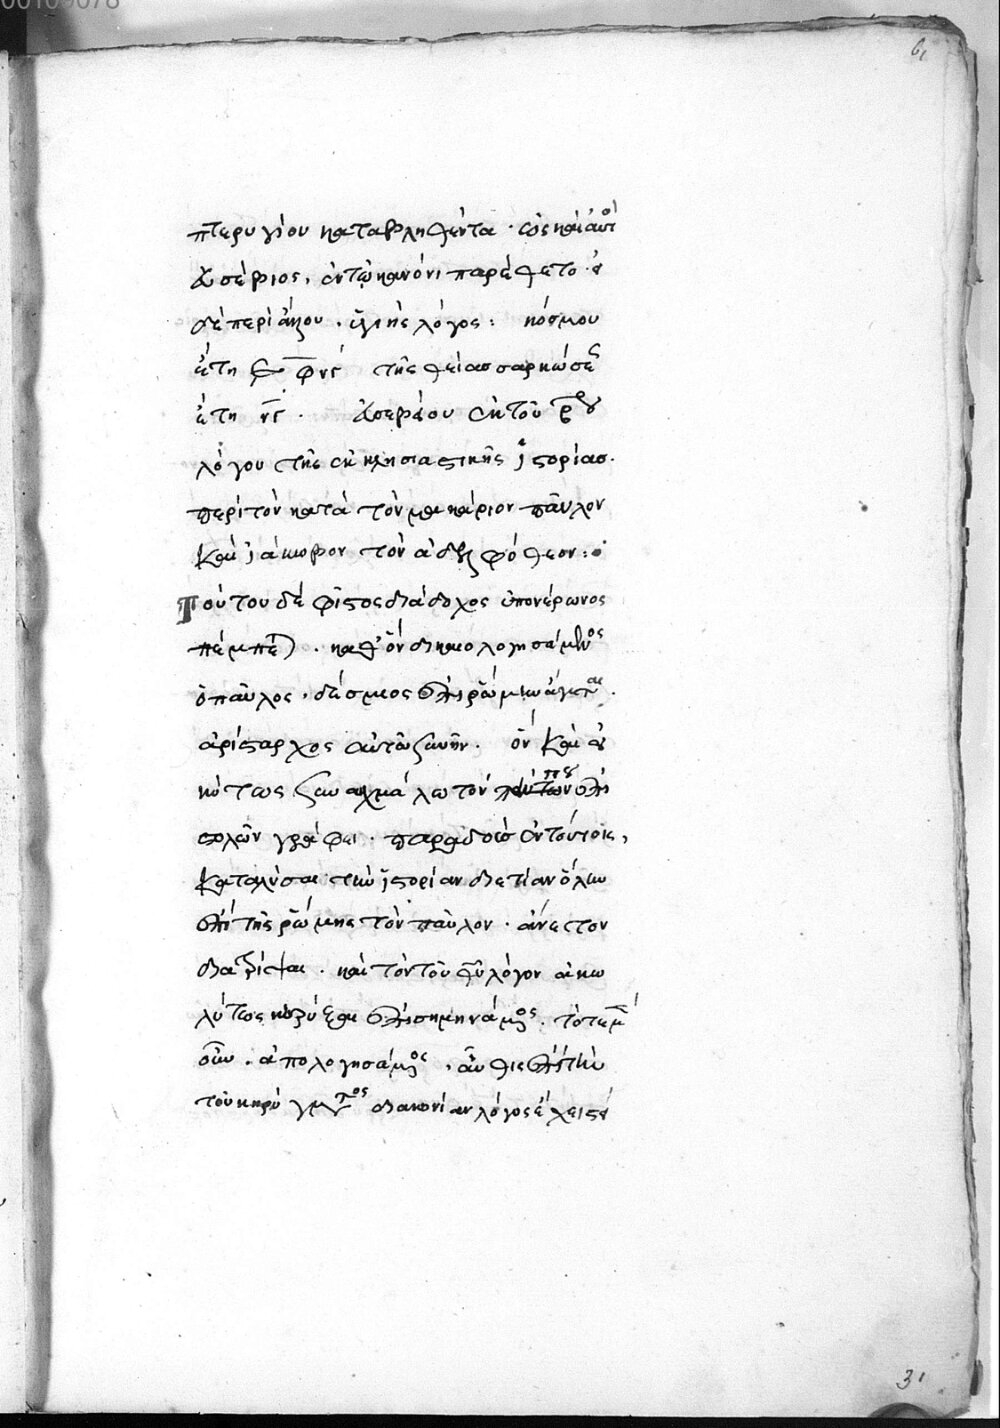 00109078
61
πτερυγίου καταβληθέντα · ὡς καὶ αὐτὸ
εὐσέβιος, ἐν τῷ κανόνι παρέθετο · ὁ
δὲ περὶ ἄγγου · ὑγιὴς λόγος : κόσμου
ἔτη ͵ε φνγ τῆς θείας σαρκώσε
ἔτη νγ · εὐσεβίου ἐκ τοῦ β ου
λόγου τῆς ἐκκλησιαστικῆς ἱστορίας ·
περὶ τὸν κατὰ τὸν μακάριον παῦλον
καὶ ἰάκωβον τὸν ἀδελφόθεον :
Τούτου δὲ φῖστος διάδοχος ὑπὸ νέρωνος
πέμπε · καθ' ὃν δικαιολογησάμενος
ὁ παῦλος · δέσμιος ἐπὶ ῥώμην ἄγεται ·
ἀρίσταρχος αὐτῷ συνῆν · ὃν καὶ εἰ
κότως συναιχμάλωτόν που τῶν ἐπι
στολῶν γράφει · παραδοὺς ἐν τούτοις,
καταλύσαι τὴν ἱστορίαν διετίαν ὅλην
ἐπὶ τῆς ῥώμης τὸν παῦλον · ἄνετον
διατρίψαι · καὶ τὸν τοῦ θῦ λόγον ἀκω
λύτως κηρύξαι ἐπισημηνάμενος · τότε μὲν
οὖν · ἀπολογησάμενος · αὖθις ἐπὶ τὴν
τοῦ κηρύγματος διακονίαν λόγος ἔχει στέ
31